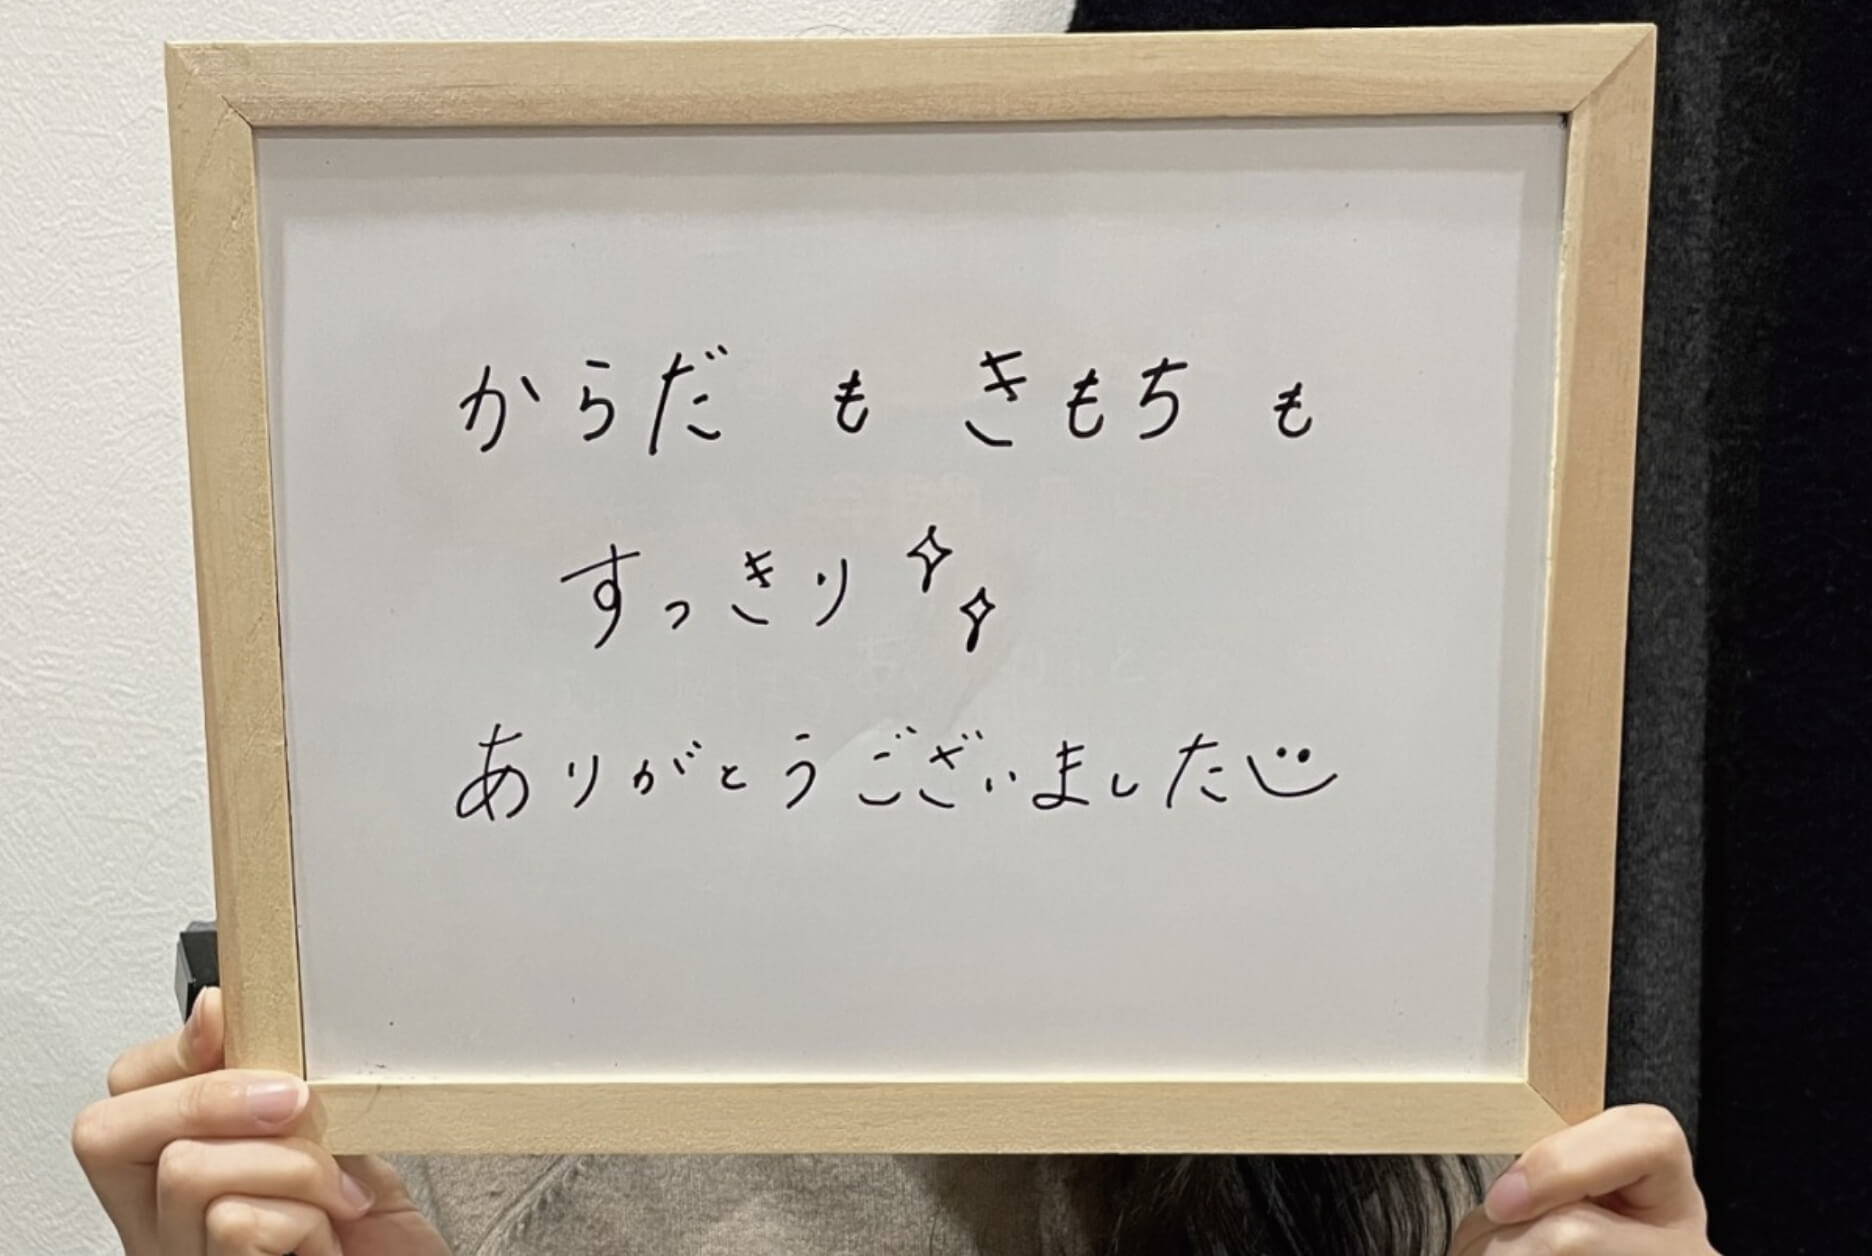 からだ も きもち も
すっきり
ありがとうございました